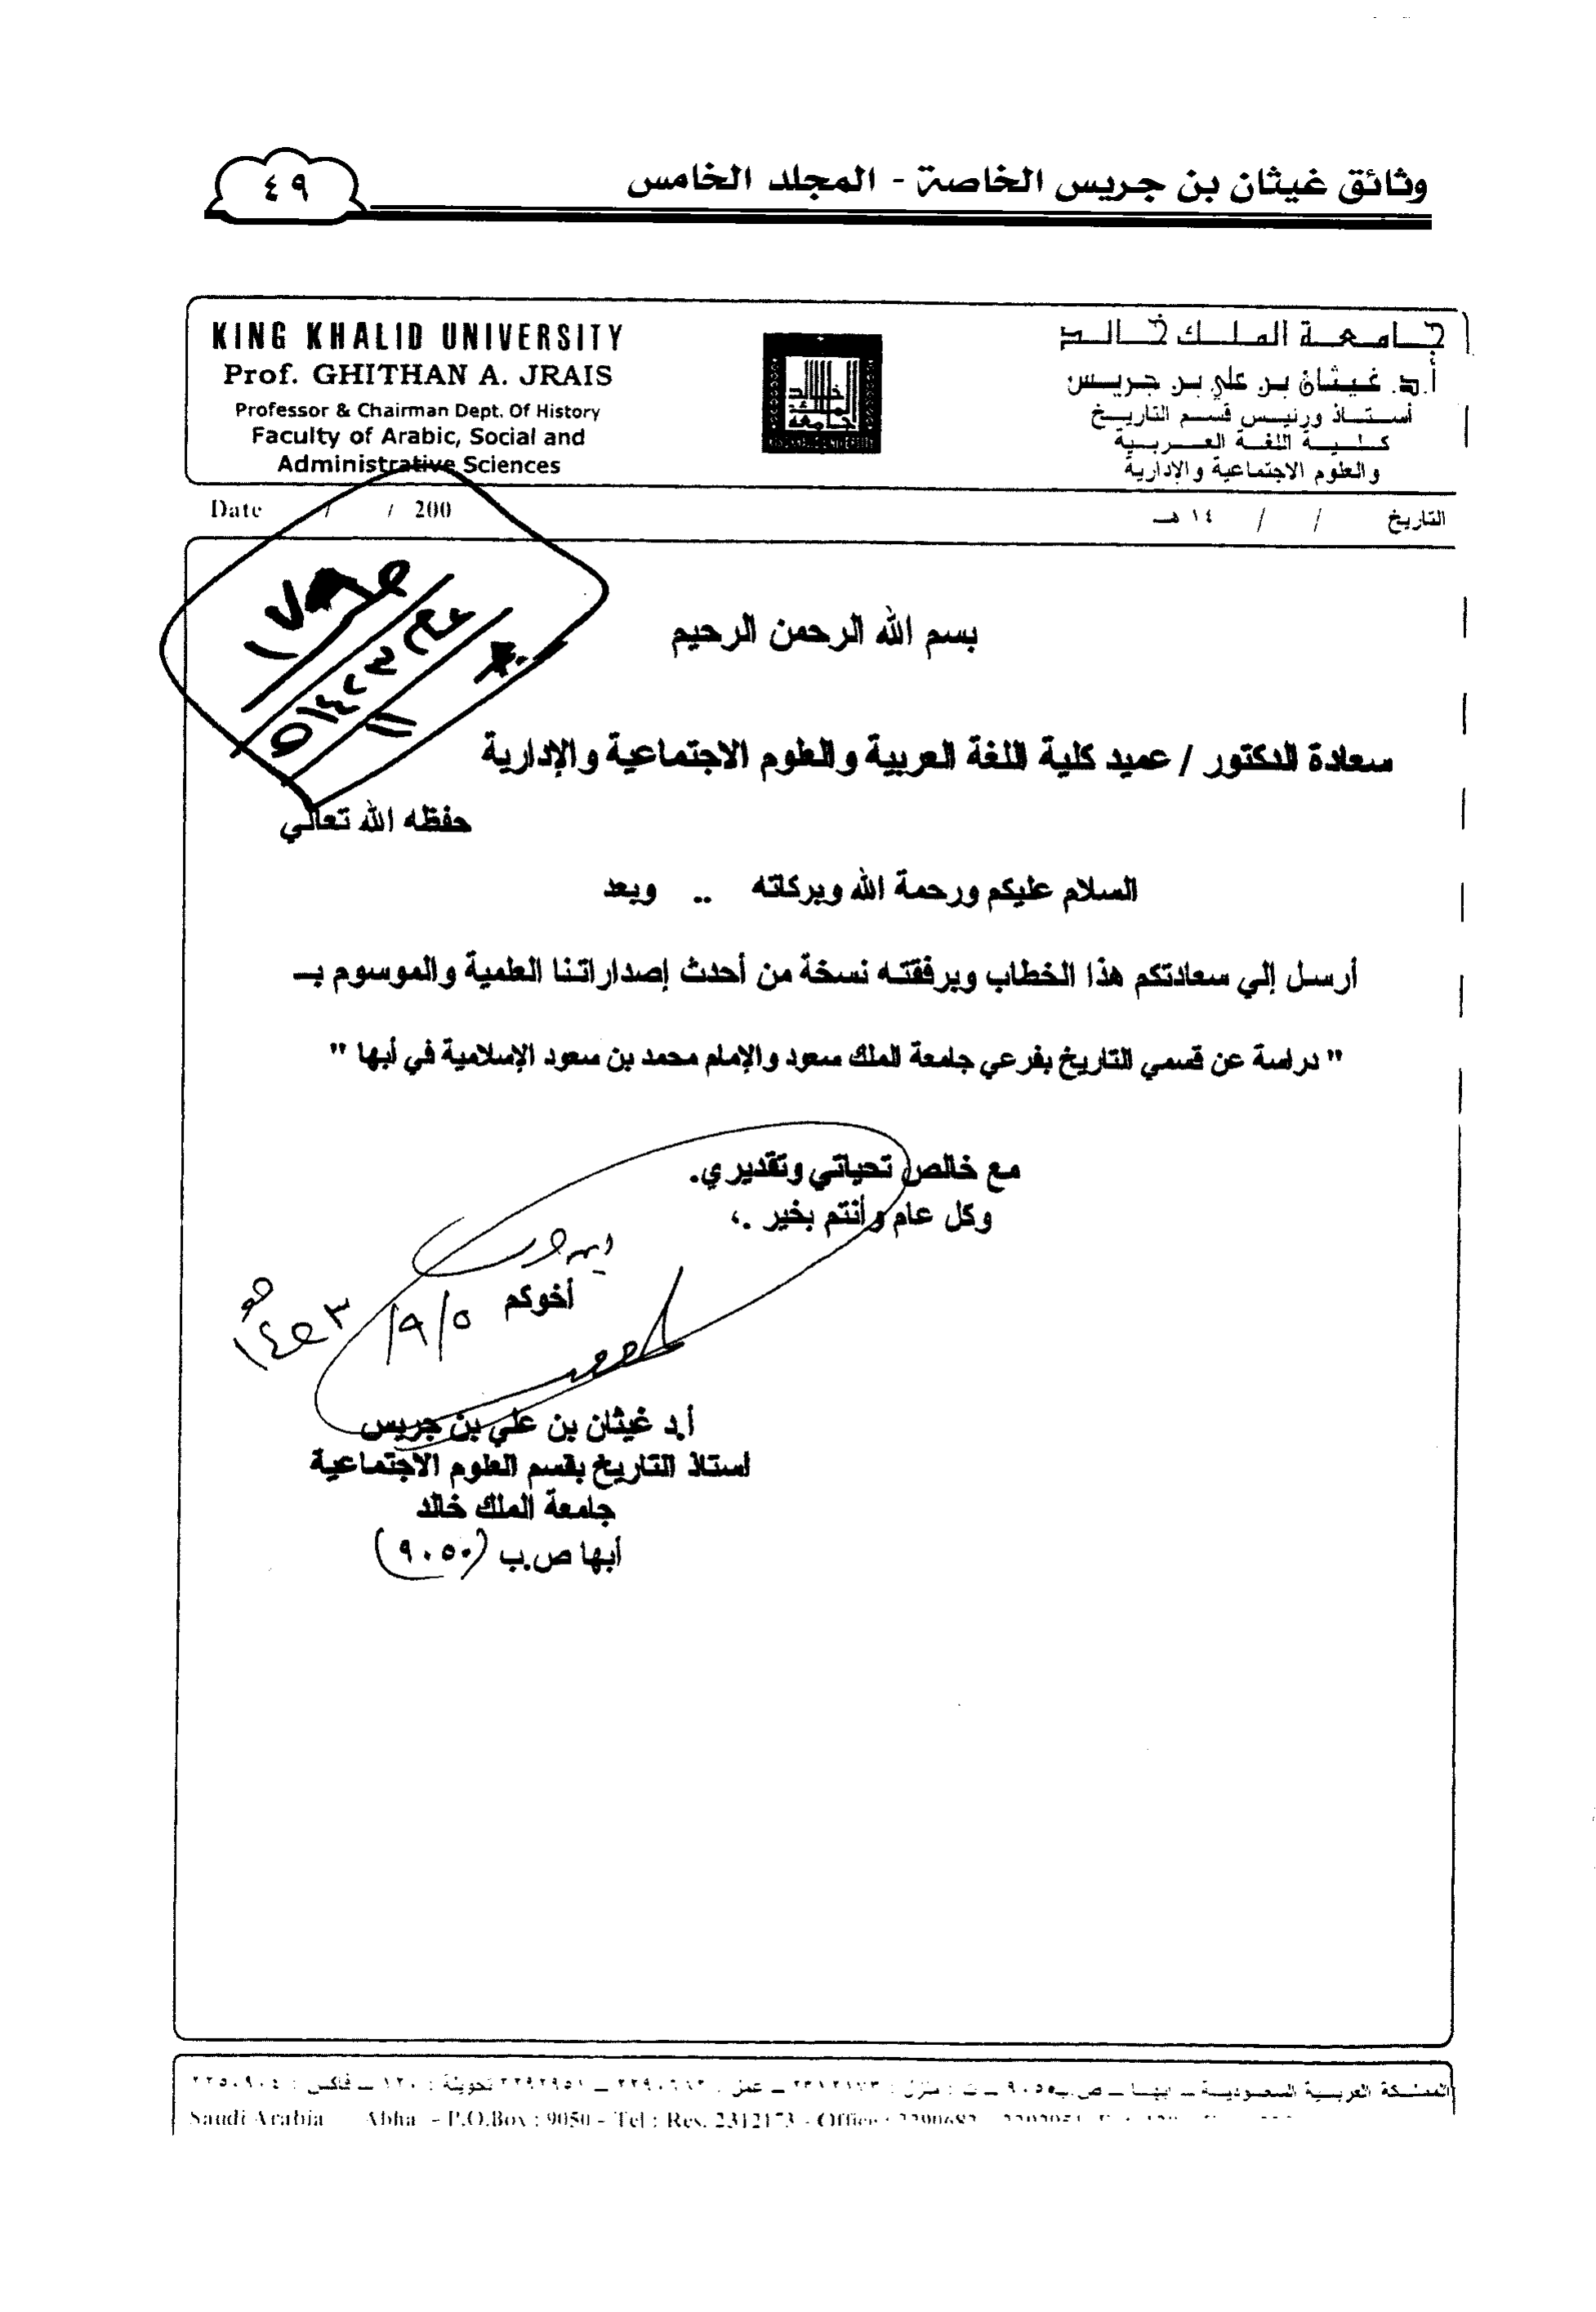 وثائق غيثان بن جريس الخاصة - المجلد الخامس
٤٩
KING KHALID UNIVERSITY
Prof. GHITHAN A. JRAIS
Professor & Chairman Dept. Of History
Faculty of Arabic, Social and
Administrative Sciences
جامعة الملك خالد
أ.د. غيثان بن علي بن جريس
أستاذ ورئيس قسم التاريخ
كلية اللغة العربية
والعلوم الاجتماعية والإدارية
Date / / 200
التاريخ / / ١٤هـ
بسم الله الرحمن الرحيم
سعادة الدكتور / عميد كلية اللغة العربية والعلوم الاجتماعية والإدارية
حفظه الله تعالي
السلام عليكم ورحمة الله وبركاته .. وبعد
أرسل إلي سعادتكم هذا الخطاب وبرفقته نسخة من أحدث إصداراتنا العلمية والموسوم بـ
" دراسة عن قسمي التاريخ بفرعي جامعة الملك سعود والإمام محمد بن سعود الإسلامية في أبها "
مع خالص تحياتي وتقديري.
وكل عام وأنتم بخير .،
أخوكم
٥/٩/
أ.د غيثان بن علي بن جريس
أستاذ التاريخ بقسم العلوم الاجتماعية
جامعة الملك خالد
أبها ص.ب (٩٠٥٠)
المملكة العربية السعودية – ابها – ص.ب ٩٠٥٥ – ت : منزل : ٢٣١٢١٧٣ – عمل : ٢٢٩٠٦٨٢ – ٢٢٩٢٩٥١ تحويلة : ١٢٠ – فاكس : ٢٢٥٠٩٠٤
Saudi Arabia Abha - P.O.Box : 9050 - Tel : Res. 2312173 - Office : 2290682